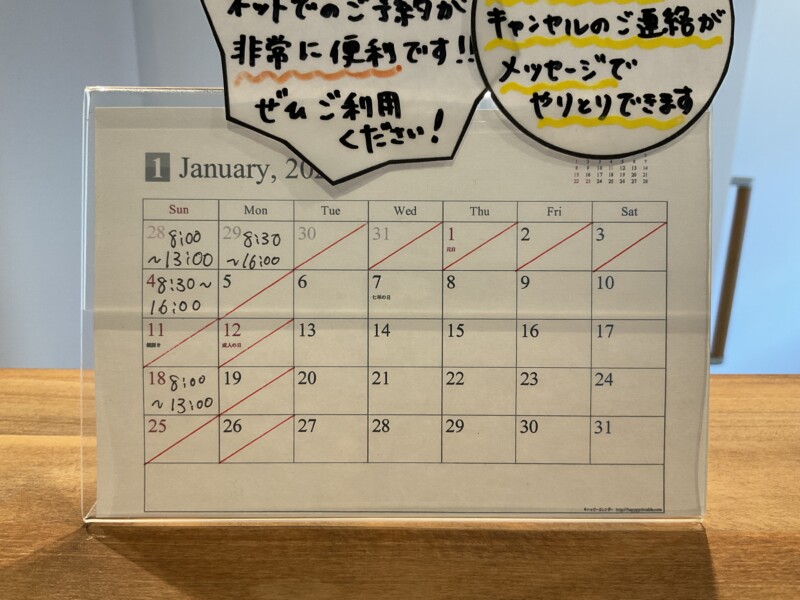 ネットでのご予約が
非常に便利です!!
ぜひご利用
ください!
キャンセルのご連絡が
メッセージで
やりとりできます
1 January, 202
Sun Mon Tue Wed Thu Fri Sat
28 8:00 ~13:00 29 8:30 ~16:00 30 31 1 元日 2 3
4 8:30~ 16:00 5 6 7 七草の日 8 9 10
11 鏡開き 12 成人の日 13 14 15 16 17
18 8:00 ~13:00 19 20 21 22 23 24
25 26 27 28 29 30 31